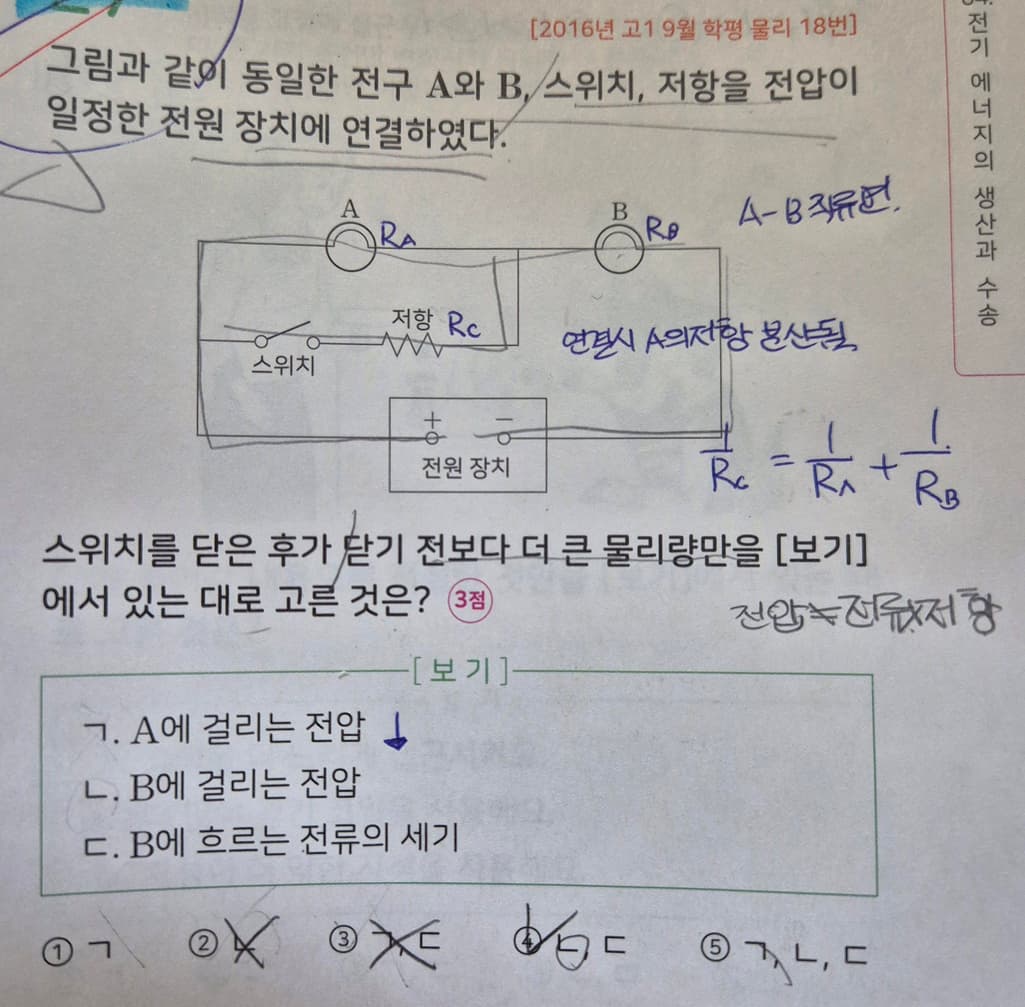 [2016년 고1 9월 학평 물리 18번]
그림과 같이 동일한 전구 A와 B, 스위치, 저항을 전압이
일정한 전원 장치에 연결하였다.
A
RA
B
RB
A-B 직류연.
저항
RC
스위치
연결시 A의저항 분산됨
+
−
전원 장치
1/RC = 1/RA + 1/RB
스위치를 닫은 후가 닫기 전보다 더 큰 물리량만을 [보기]
에서 있는 대로 고른 것은? 3점
전압=전류×저항
[보기]
ㄱ. A에 걸리는 전압 ↓
ㄴ. B에 걸리는 전압
ㄷ. B에 흐르는 전류의 세기
① ㄱ ② ㄴ ③ ㄱ, ㄷ ④ ㄴ, ㄷ ⑤ ㄱ, ㄴ, ㄷ
전기 에너지의 생산과 수송